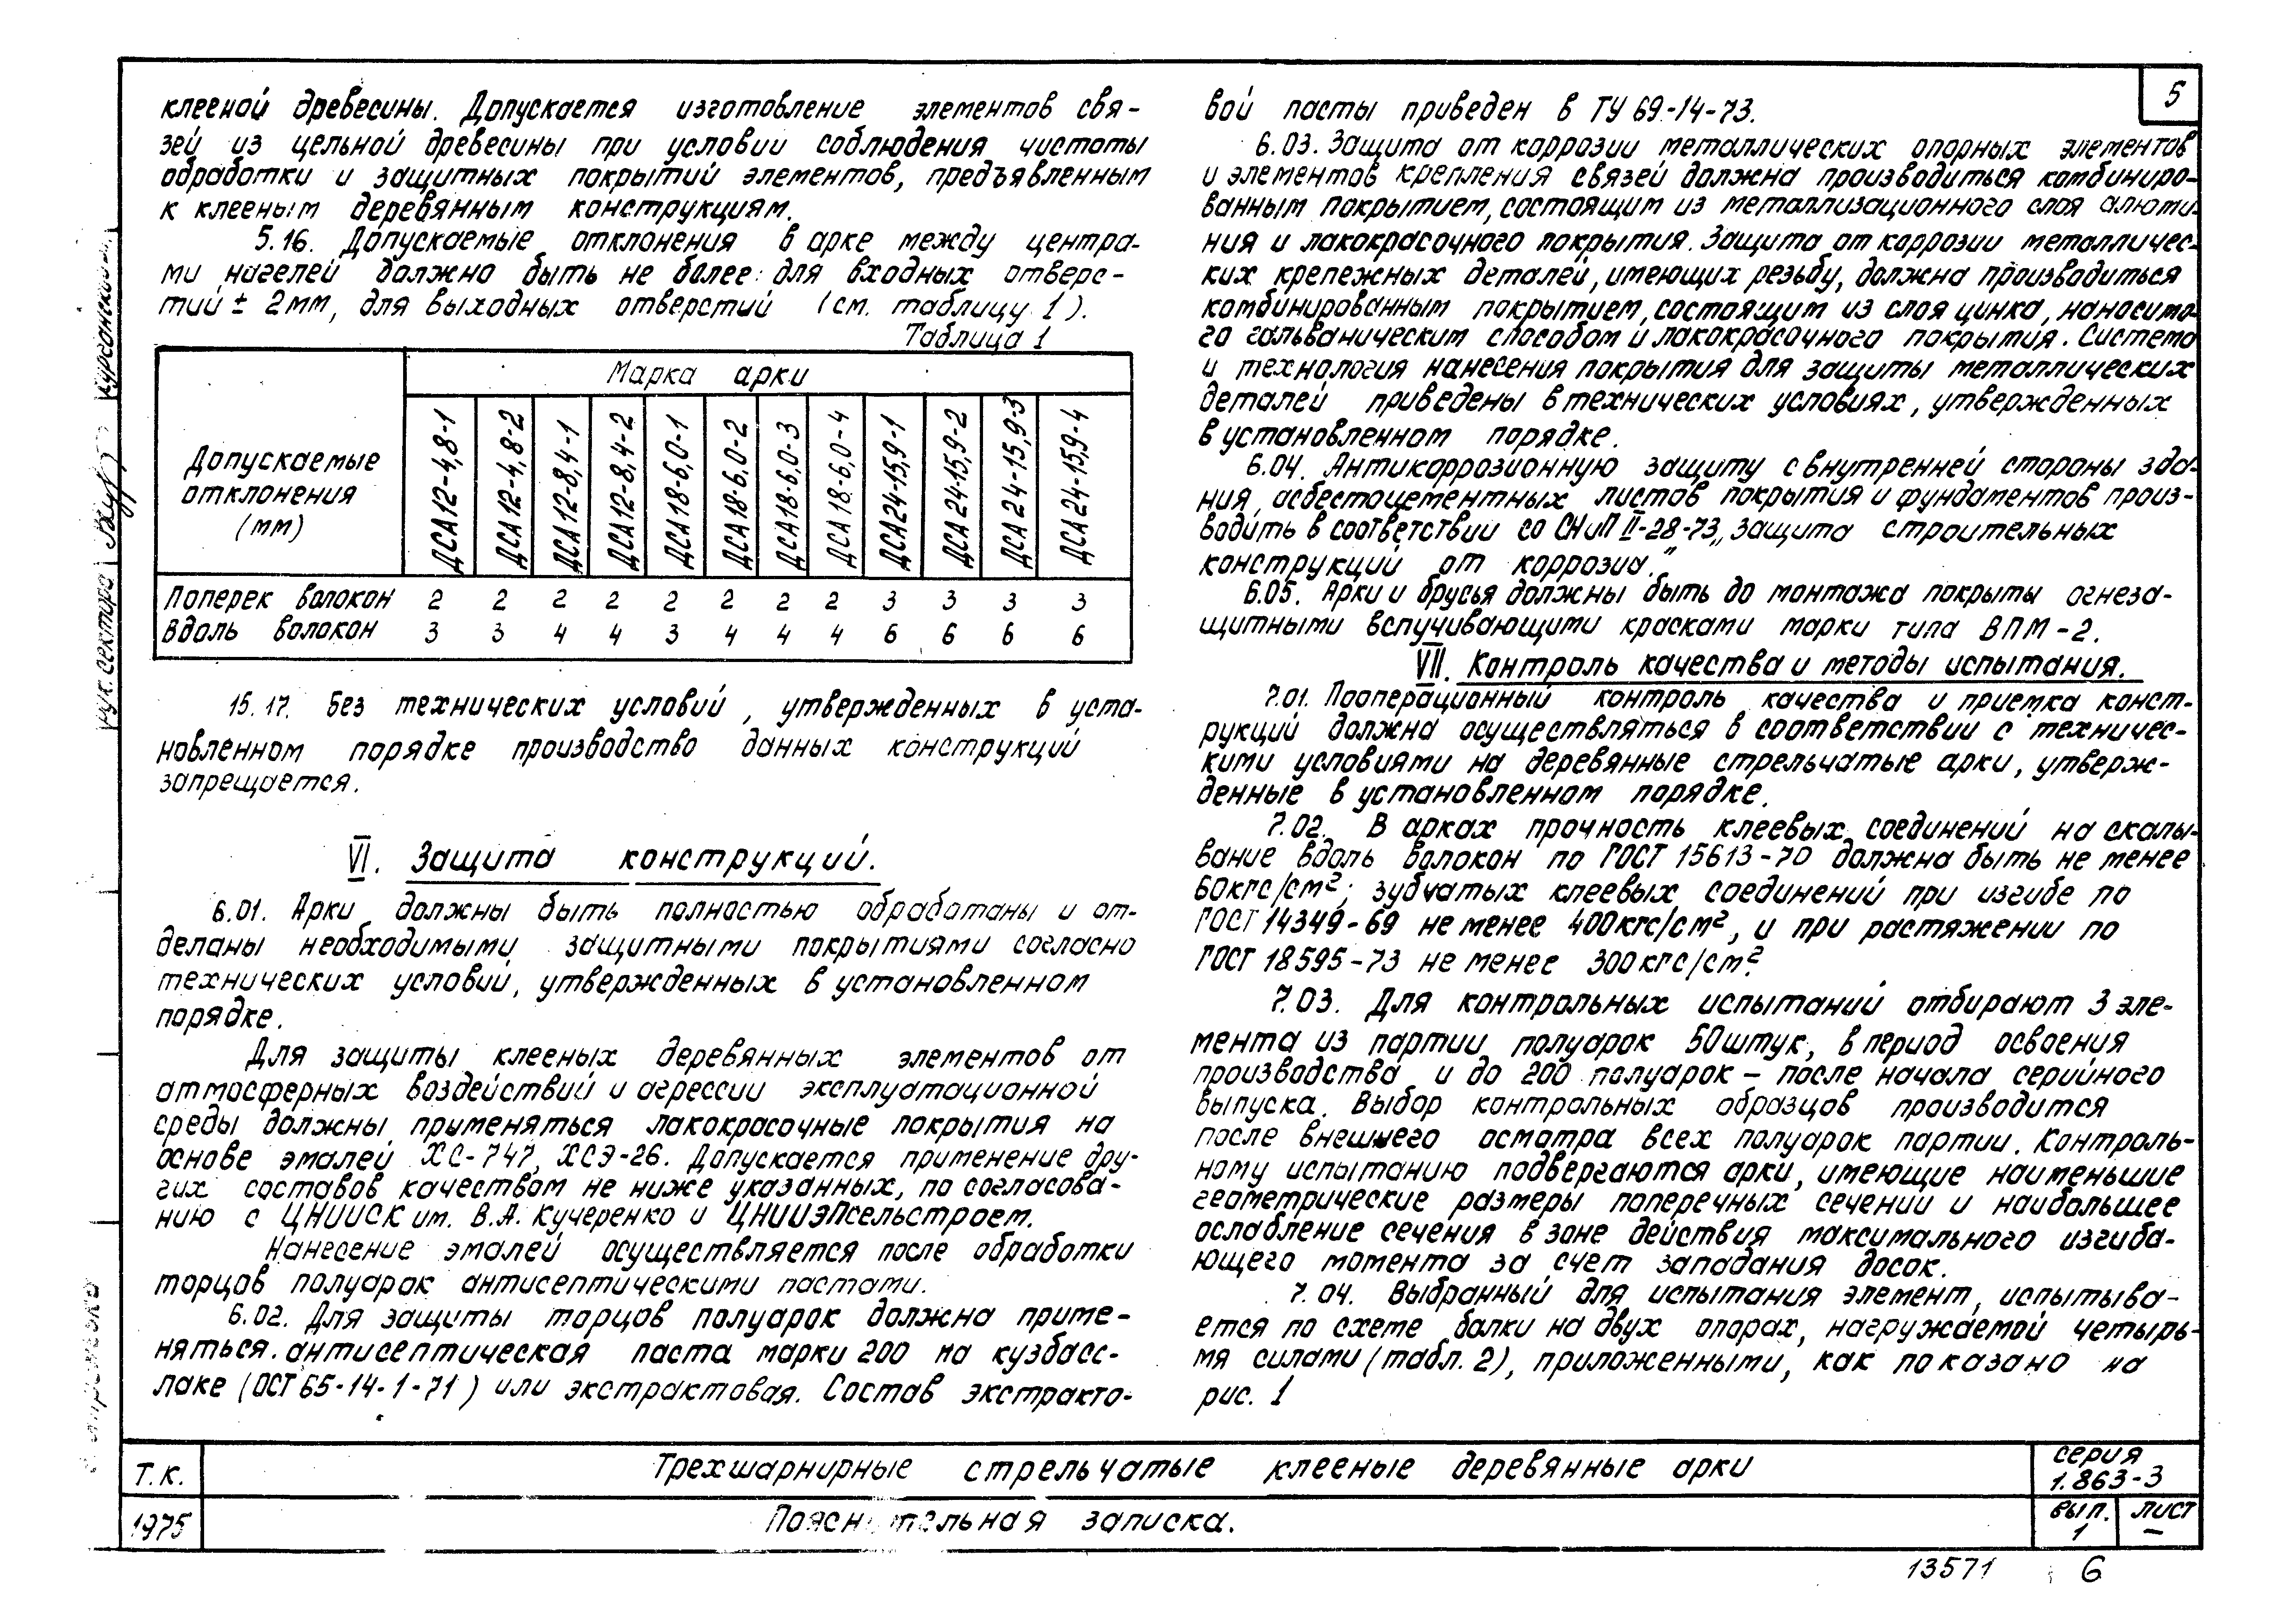 5
клееной древесины. Допускается изготовление элементов свя-
зей из цельной древесины при условии соблюдения чистоты
обработки и защитных покрытий элементов, предъявленным
к клееным деревянным конструкциям.
5.16. Допускаемые отклонения в арке между центра-
ми нагелей должно быть не более: для входных отверс-
тий ± 2мм, для выходных отверстий (см. таблицу 1).
Таблица 1
Допускаемые отклонения (мм)
Марка арки
ДСА12-4,8-1 ДСА12-4,8-2 ДСА12-8,4-1 ДСА12-8,4-2 ДСА18-6,0-1 ДСА18-6.0-2 ДСА18-6.0-3 ДСА18-6,0-4 ДСА24-15,9-1 ДСА24-15,9-2 ДСА24-15,9-3 ДСА24-15,9-4
Поперек волокон 2 2 2 2 2 2 2 2 3 3 3 3
Вдоль волокон 3 3 4 4 3 4 4 4 6 6 6 6
15.17. Без технических условий, утвержденных в уста-
новленном порядке производство данных конструкций
запрещается.
VI. Защита конструкций.
6.01. Арки должны быть полностью обработаны и от-
деланы необходимыми защитными покрытиями согласно
технических условий, утвержденных в установленном
порядке.
Для защиты клееных деревянных элементов от
атмосферных воздействий и агрессии эксплуатационной
среды должны применяться лакокрасочные покрытия на
основе эмалей ХС-747, ХСЭ-26. Допускается применение дру-
гих составов качеством не ниже указанных, по согласова-
нию с ЦНИИСК им. В.А. Кучеренко и ЦНИИЭПсельстроем.
Нанесение эмалей осуществляется после обработки
торцов полуарок антисептическими пастами.
6.02. Для защиты торцов полуарок должна приме-
няться антисептическая паста марки 200 на кузбасс-
лаке (ОСТ 65-14-1-71) или экстрактовая. Состав экстракто-
вой пасты приведен в ТУ 69-14-73.
6.03. Защита от коррозии металлических опорных элементов
и элементов крепления связей должна производиться комбиниро-
ванным покрытием, состоящим из металлизационного слоя алюми-
ния и лакокрасочного покрытия. Защита от коррозии металличес-
ких крепежных деталей, имеющих резьбу, должна производиться
комбинированным покрытием, состоящим из слоя цинка, наносимо-
го гальваническим способом и лакокрасочного покрытия. Система
и технология нанесения покрытия для защиты металлических
деталей приведены в технических условиях, утвержденных
в установленном порядке.
6.04. Антикоррозионную защиту с внутренней стороны зда-
ния, асбестоцементных листов покрытия и фундаментов произ-
водить в соответствии со СНиП II-28-73 „Защита строительных
конструкций от коррозии."
6.05. Арки и брусья должны быть до монтажа покрыты огнеза-
щитными вспучивающими красками марки типа ВПМ-2.
VII. Контроль качества и методы испытания.
7.01. Пооперационный контроль качества и приемка конст-
рукций должна осуществляться в соответствии с техничес-
кими условиями на деревянные стрельчатые арки, утверж-
денные в установленном порядке.
7.02. В арках прочность клеевых соединений на скалы-
вание вдоль волокон по ГОСТ 15613-70 должна быть не менее
60кгс/см²; зубчатых клеевых соединений при изгибе по
ГОСТ 14349-69 не менее 400кгс/см², и при растяжении по
ГОСТ 18595-73 не менее 300кгс/см².
7.03. Для контрольных испытаний отбирают 3 эле-
мента из партии полуарок 50штук, в период освоения
производства и до 200 полуарок — после начала серийного
выпуска. Выбор контрольных образцов производится
после внешнего осмотра всех полуарок партии. Контроль-
ному испытанию подвергаются арки, имеющие наименьшие
геометрические размеры поперечных сечений и наибольшее
ослабление сечения в зоне действия максимального изгиба-
ющего момента за счет западания досок.
7.04. Выбранный для испытания элемент, испытыва-
ется по схеме балки на двух опорах, нагружаемой четырь-
мя силами (табл. 2), приложенными, как показано на
рис. 1
рук. сектора
Т.К.
1975
Трехшарнирные стрельчатые клееные деревянные арки
Пояснительная записка.
серия
1.863-3
вып. лист
1 —
13571 6